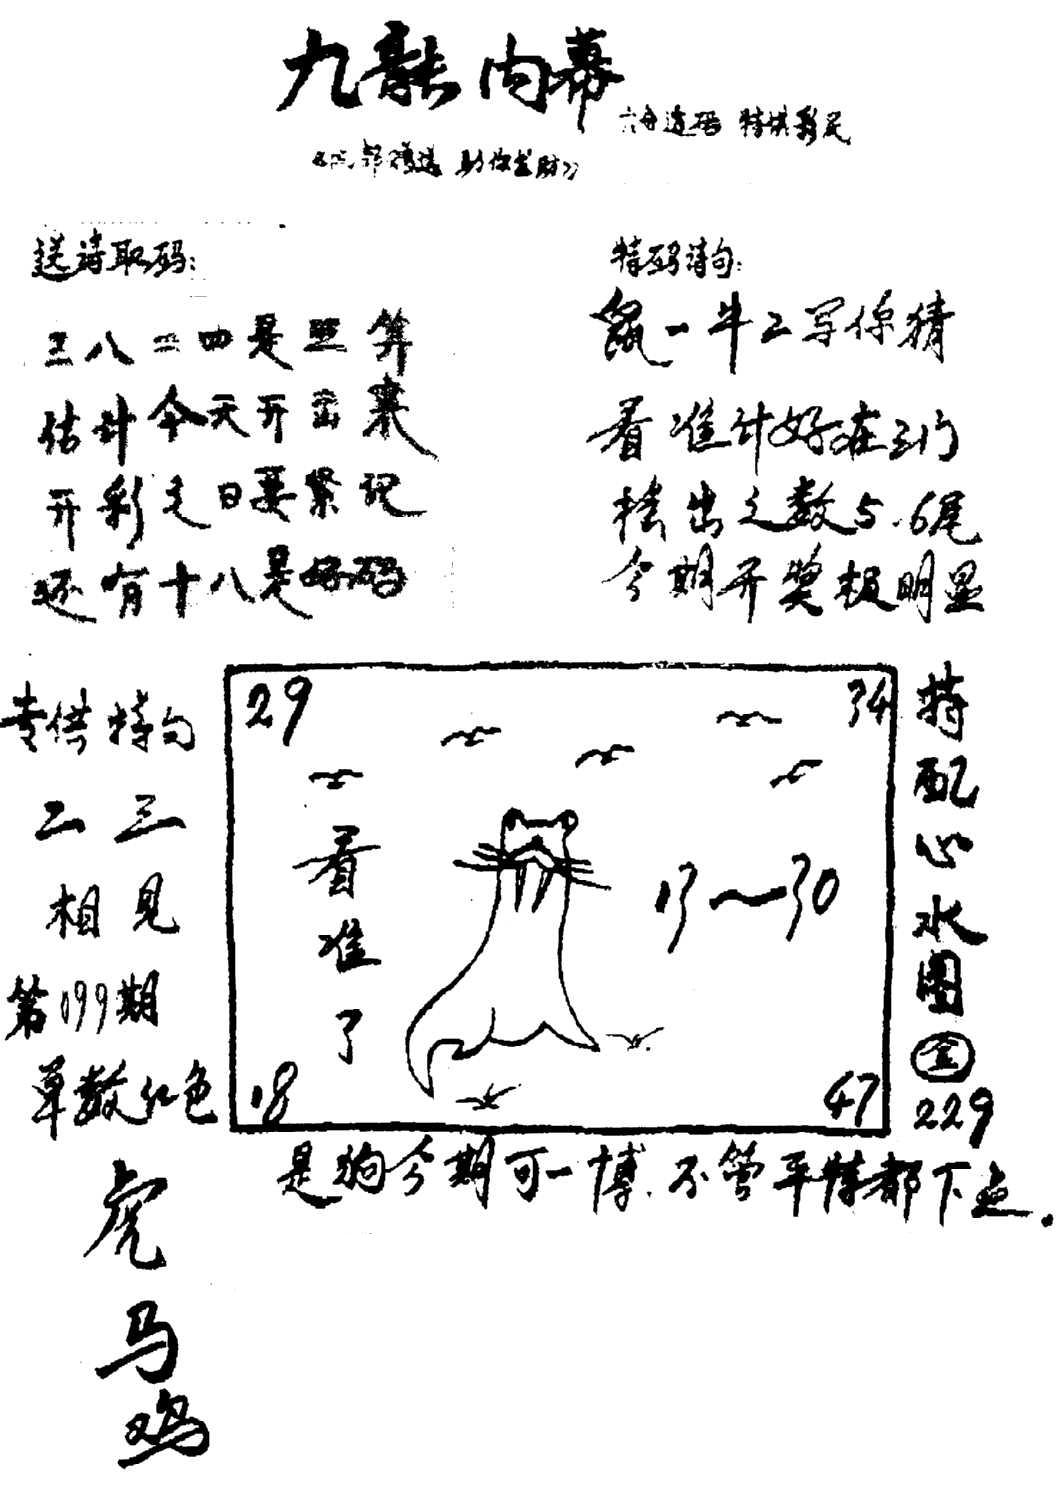 九龍内幕
六合透码 特供彩民
精选 助你发财》
送诗取码:
三八二四是照算
估计今天开出来
开彩之日要紧记
还有十八是好码
特码诗句:
鼠一牛二写你猜
看准计好在三门
桂出之数5.6尾
今期开奖极明显
专供特句
二三
相见
第099期
单数红色
虎
马
鸡
29
34
看准了
13~30
18
47
特配心水图
229
是狗今期可一博.不管平特都下点.